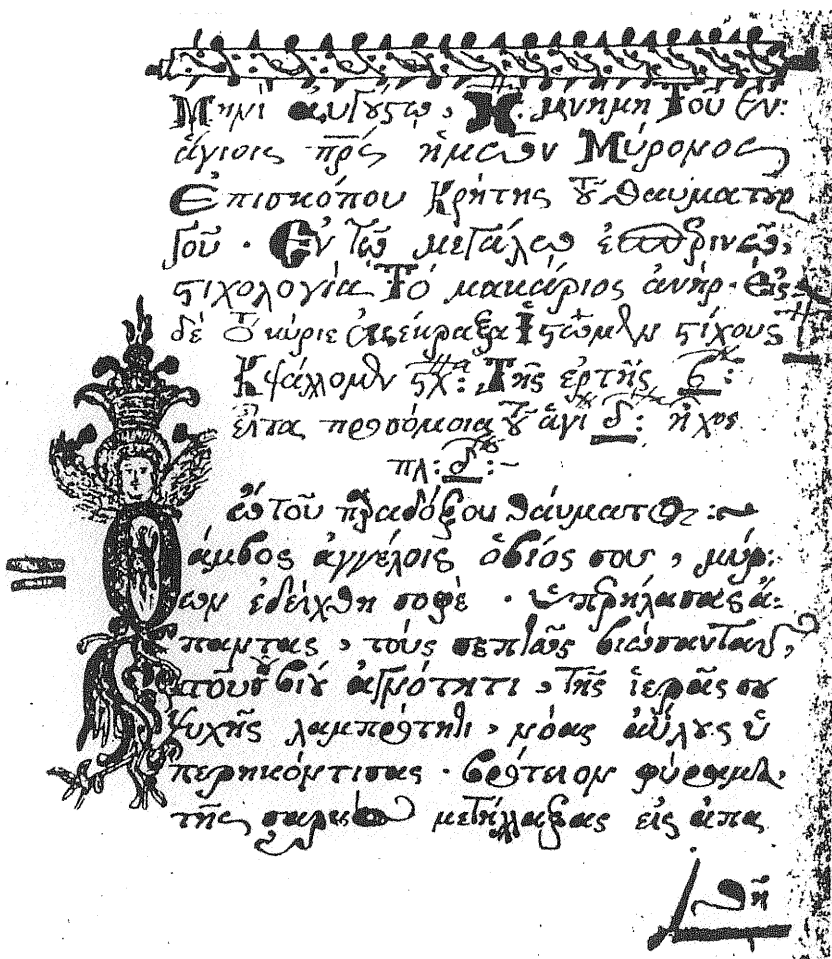 Μηνὶ αὐγούστω, Η. μνήμη τοῦ ἐν
ἁγίοις πρς ἡμῶν Μύρωνος
Ἐπισκόπου Κρήτης τοῦ θαυματουρ
γοῦ. Ἐν τῶ μεγάλω ἑσπερινῶ,
στιχολογία τὸ μακάριος ἀνήρ. Εἰς
δὲ τὸ κύριε ἐκέκραξα ἱστῶμεν στίχους
Κ ψάλλομεν στχ: Τῆς ἑορτῆς
εἶτα προσόμοια τοῦ ἁγί δ: ἦχος
πλ: δ :-
ὢ τοῦ παραδόξου θαύματος :~
άμβος ἀγγέλοις ὁ βίος σου, μύρ
ων ἐδείχθη σοφὲ . ὑπερήλασας ἅ
παντας, τοὺς σεπτῶς βιώσαντας,
τοῦ βίου ἁγνότητι, τῆς ἱερᾶς σου
ψυχῆς λαμπρότητι, νόας ἀΰλους ὑ
περηκόντισας . βρότειον φύραμα,
τῆς σαρκὸς μετήλλαξας εἰς ἀπα
θῆ